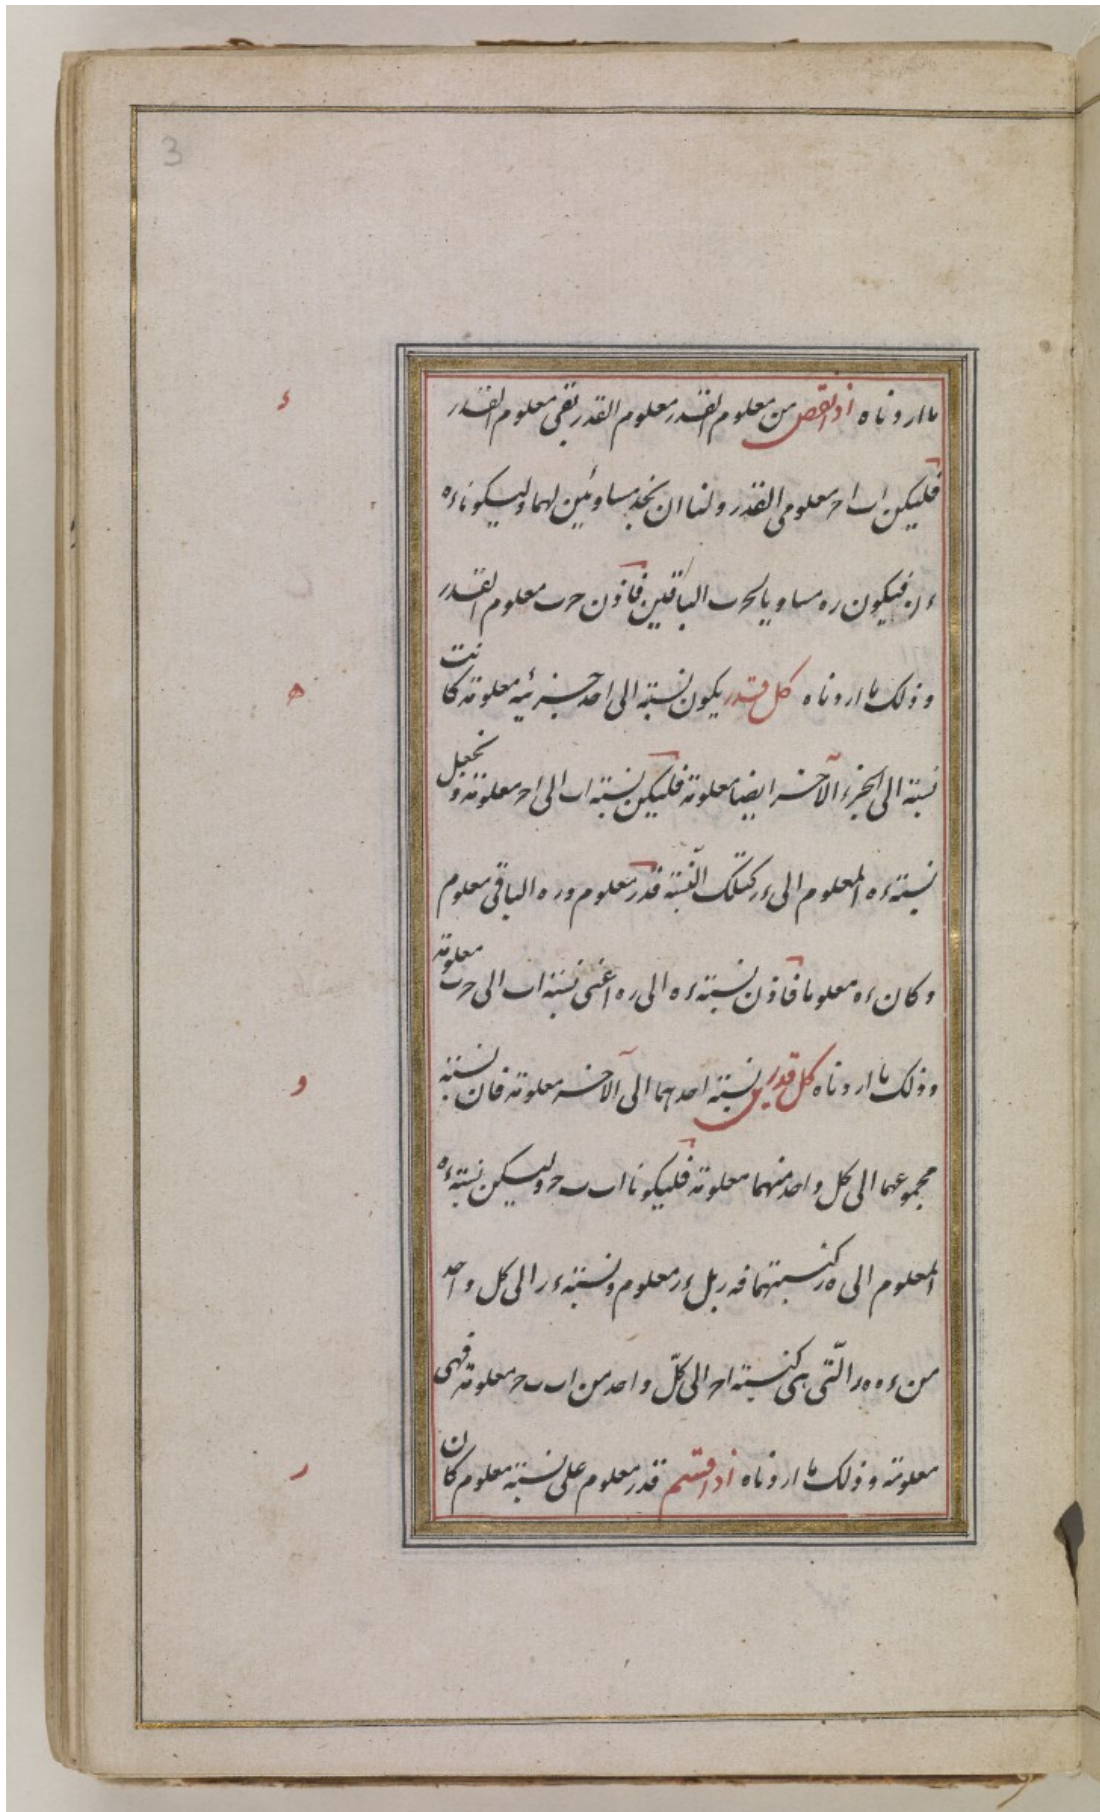 3
ما اردناه اذا نقص من معلوم القدر معلوم القدر بقى معلوم القدر
ء
فليكن اب احر معلومى القدر ولنا ان نجد مساويين لهما وليكونا ءه
ءر فيكون ره مساويا لحرب الباقيين فاذن حرب معلوم القدر
وذلك ما اردناه كل قدر يكون نسبته الى احد جزئيه معلومة كانت
ه
نسبته الى الجزء الآخر ايضا معلومة فليكن نسبة اب الى احر معلومة ونجعل
نسبة ءه المعلوم الى ءر كتلك النسبة فءر معلوم وره الباقى معلوم
وكان ءه معلوما فاذن نسبة ءه الى ره اعنى نسبة اب الى حرب معلومة
وذلك ما اردناه كل قدرين نسبة احدهما الى الآخر معلومة فان نسبة
و
مجموعهما الى كل واحد منهما معلومة فليكونا اب ب حر وليكن نسبة ءه
المعلوم الى ه ر كنسبتهما فه ر بل ءر معلوم ونسبة ءر الى كل واحد
من ءه ه ر التى هى كنسبة احر الى كلّ واحد من اب ب حر معلومة فهى
معلومة وذلك ما اردناه اذا قسم قدر معلوم على نسبة معلوم كان
ر